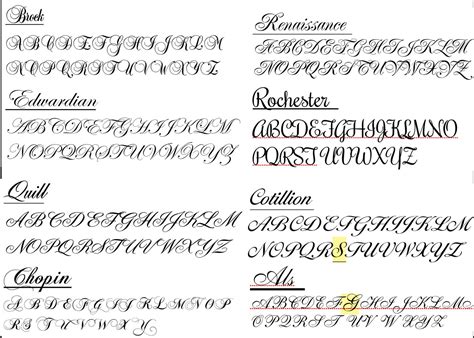 Brock
ABCDEFGHIJKLM
NOPQRSTUVWXYZ
Edwardian
ABCDEFGHIJKLM
NOPQRSTUVWXYZ
Quill
ABCDEFGHIJKLM
NOPQRSTUVWXYZ
Chopin
A B C D E F G H I J K L M N
O P Q R S T U V W X Y Z
Renaissance
ABCDEFGHIJKLM
NOPQRSTUVWXYZ
Rochester
ABCDEFGHIJKLMNO
PQRSTUVWXYZ
Cotillion
ABCDEFGHIJKLM
NOPQRSTUVWXYZ
Als
ABCDEFGHIJKLM
NOPQRST UV WXYZ